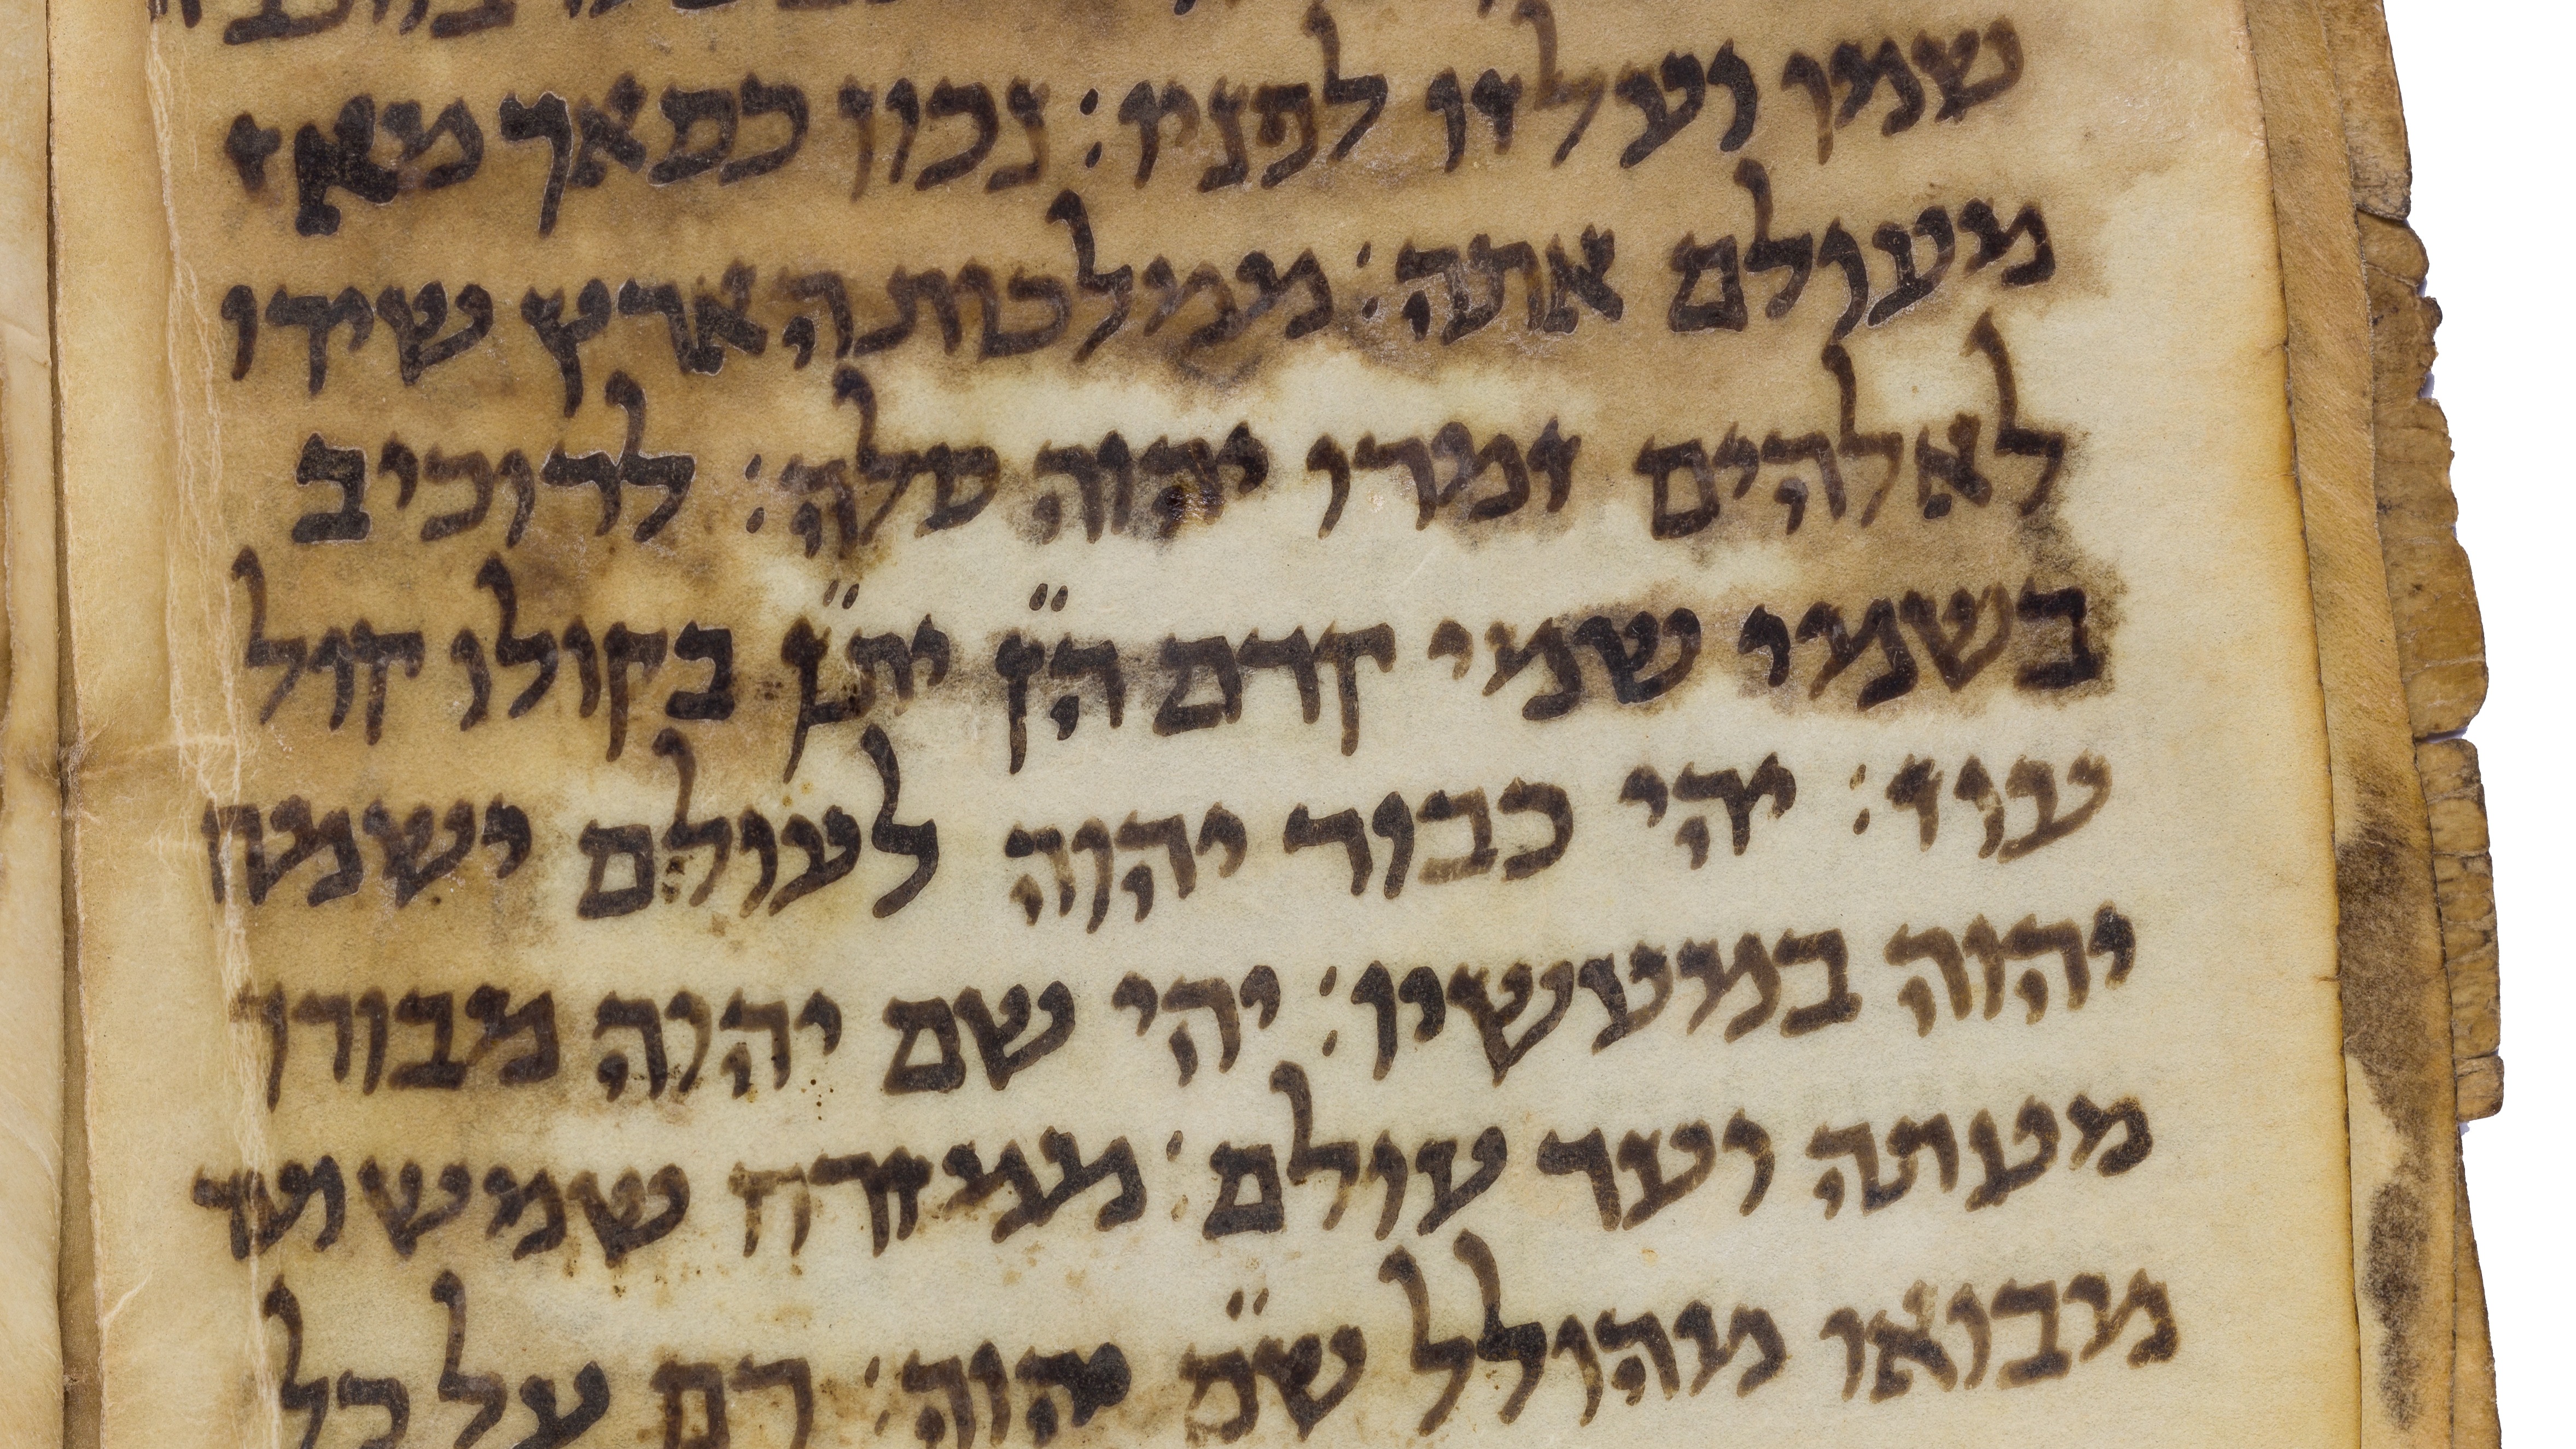 שמו ועלזו לפניו: נכון כסאך מאז
מעולם אתה: ממלכות הארץ שירו
לאלהים זמרו יהוה סלה: לרוכיב
בשמי שמי קדם הן יתן בקולו קול
עוז: יהי כבוד יהוה לעולם ישמח
יהוה במעשיו: יהי שם יהוה מבורך
מעתה ועד עולם: ממזרח שמש ועד
מבואו מהולל שם יהוה: רם על כל